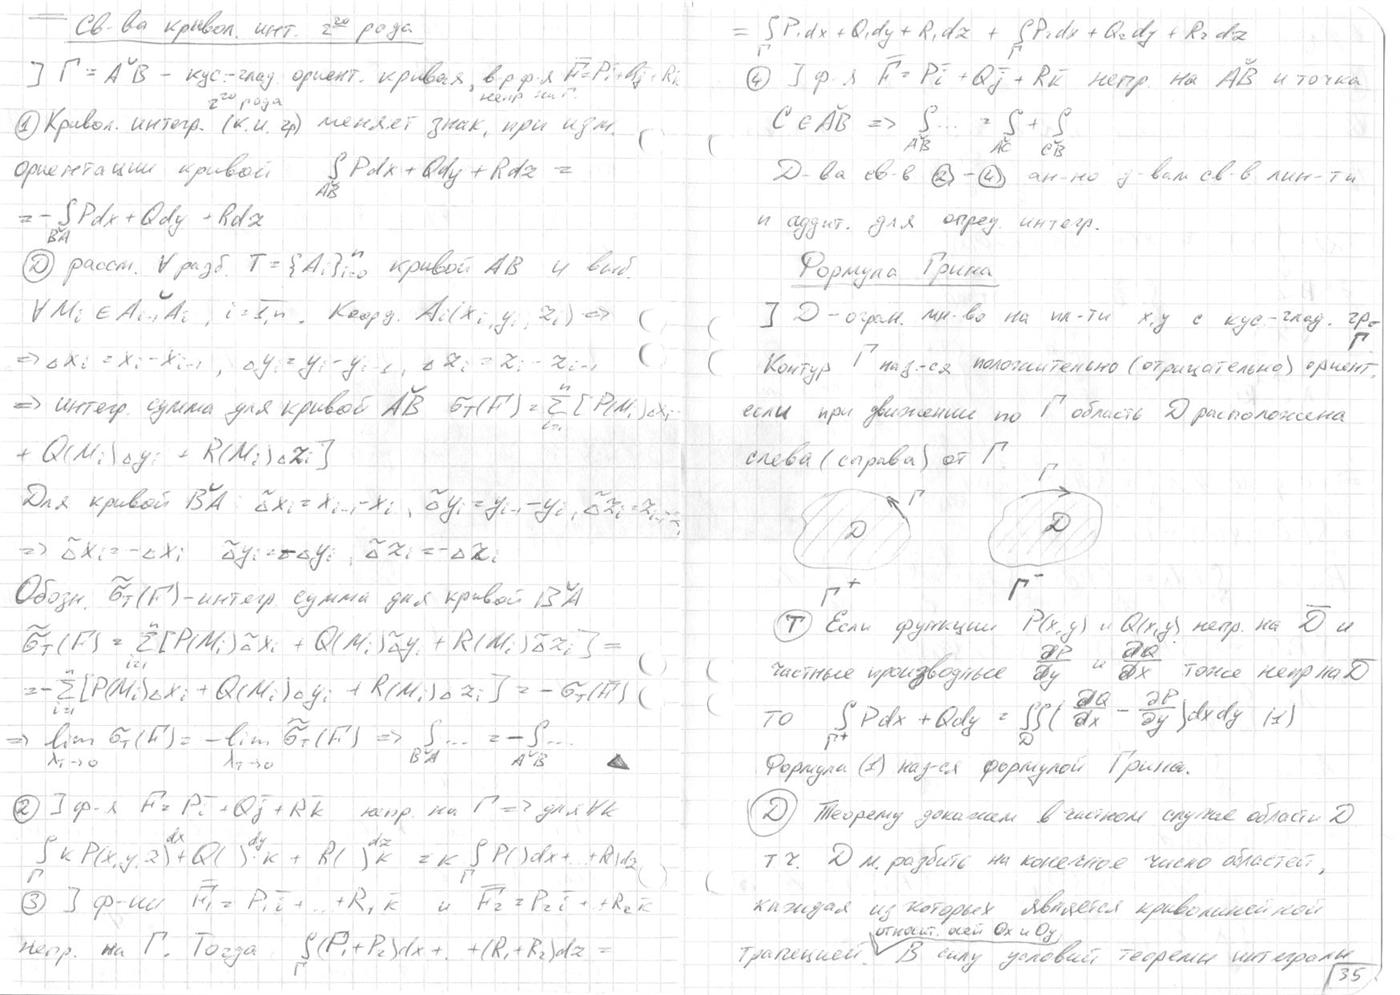 Св-ва кривол. инт. 2го рода
] Г = A̮B - кус-глад. ориент. кривая, в р ф-я F̅=Pi̅+Qj̅+Rk̅
непр на Г.
2го рода
① Кривол. интегр. (к.и. гр) меняет знак, при изм.
ориентации кривой ∫_{A̮B} Pdx + Qdy + Rdz =
= -∫_{B̮A} Pdx + Qdy + Rdz
Ⓓ рассм. ∀ разб. T = {Ai}ⁿi=0 кривой AB и выб.
∀ Mi ∈ Ai-1Ai, i=1,n. Коорд. Ai(xi, yi, zi) =>
=> Δxi = xi - xi-1, Δyi = yi - yi-1, Δzi = zi - zi-1
=> интегр. сумма для кривой A̮B σT(F̅) = Σⁿi=1 [P(Mi)Δxi
+ Q(Mi)Δyi + R(Mi)Δzi]
Для кривой B̮A Δ̃xi = xi-1 - xi, Δ̃yi = yi-1 - yi, Δ̃zi = zi-1-zi
=> Δ̃xi = -Δxi Δ̃yi = -Δyi, Δ̃zi = -Δzi
Обозн. σ̃T(F̅) - интегр сумма для кривой B̮A
σ̃T(F̅) = Σⁿi=1 [P(Mi)Δ̃xi + Q(Mi)Δ̃yi + R(Mi)Δ̃zi] =
= -Σⁿi=1 [P(Mi)Δxi + Q(Mi)Δyi + R(Mi)Δzi] = -σT(F̅)
=> lim_{λT→0} σT(F̅) = -lim_{λT→0} σ̃T(F̅) => ∫_{B̮A} ... = -∫_{A̮B} ...
② ] ф-я F̅ = Pi̅ + Qj̅ + Rk̅ непр. на Г => для ∀k
∫_Г kP(x,y,z)dx + Q( )dy·k + R( )dz k = k∫_Г P()dx+...+R()dz
③ ] ф-ии F̅1 = P1i̅ + ... + R1k̅ и F̅2 = P2i̅ + ..+R2k̅
непр. на Г. Тогда ∫_Г (P1+P2)dx+.. +(R1+R2)dz =
= ∫_Г P1dx + Q1dy + R1dz + ∫_Г P2dx + Q2dy + R2dz
④ ] ф-я F̅ = Pi̅ + Qj̅ + Rk̅ непр. на A̮B и точка
C ∈ A̮B => ∫_{A̮B} ... = ∫_{A̮C} + ∫_{C̮B}
Д-ва св-в ②-④ ан-но д-вам св-в лин-ти
и аддит. для опред. интегр.
Формула Грина
] D - огран. мн-во на пл-ти x,y с кус-глад. гр-
Г
Контур Г наз-ся положительно (отрицательно) ориент.
если при движении по Г область D расположена
слева (справа) от Г.
Г
Г
D
D
Г⁺
Г⁻
Ⓣ Если функции P(x,y) и Q(x,y) непр. на D̅ и
частные производные ∂P/∂y и ∂Q/∂x тоже непр на D̅
то ∫_{Г⁺} Pdx + Qdy = ∬_D (∂Q/∂x - ∂P/∂y)dxdy (1)
Формула (1) наз-ся формулой Грина.
Ⓓ Теорему докажем в частном случае области D
т.ч. D м. разбить на конечное число областей,
каждая из которых является криволинейной
относит. осей Ox и Oy
трапецией. В силу условий теоремы интегралы
35